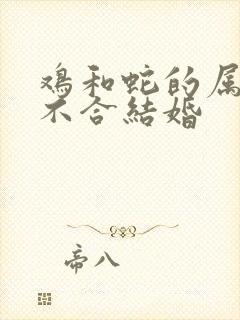 鸡和蛇的属
不合结婚
帝八